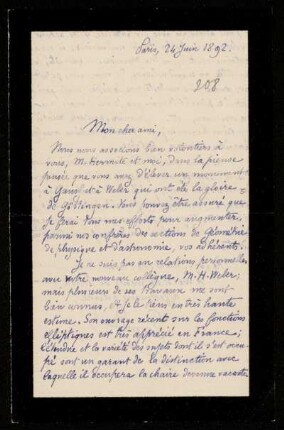 Paris, 24 Juin 1892.
208
Mon cher ami,
Nous nous associons bien volontiers à
vous, M. Hermite et moi, dans la pieuse
pensée que vous avez d'élever un monument
à Gauss et à Weber qui ont été la gloire
de Göttingen. Vous pouvez être assuré que
je ferai tous mes efforts pour augmenter,
parmi nos confrères des sections de géométrie
de physique et d'astronomie, vos adhérents.
Je ne suis pas en relations personnelles
avec votre nouveau collègue, M. H. Weber;
mais plusieurs de ses travaux me sont
bien connus, et je le tiens en très haute
estime. Son ouvrage récent sur les fonctions
elliptiques est très apprécié en France;
l'étendue et la variété des sujets dont il s'est occu-
pé sont un garant de la distinction avec
laquelle il occupera la chaire devenue vacante